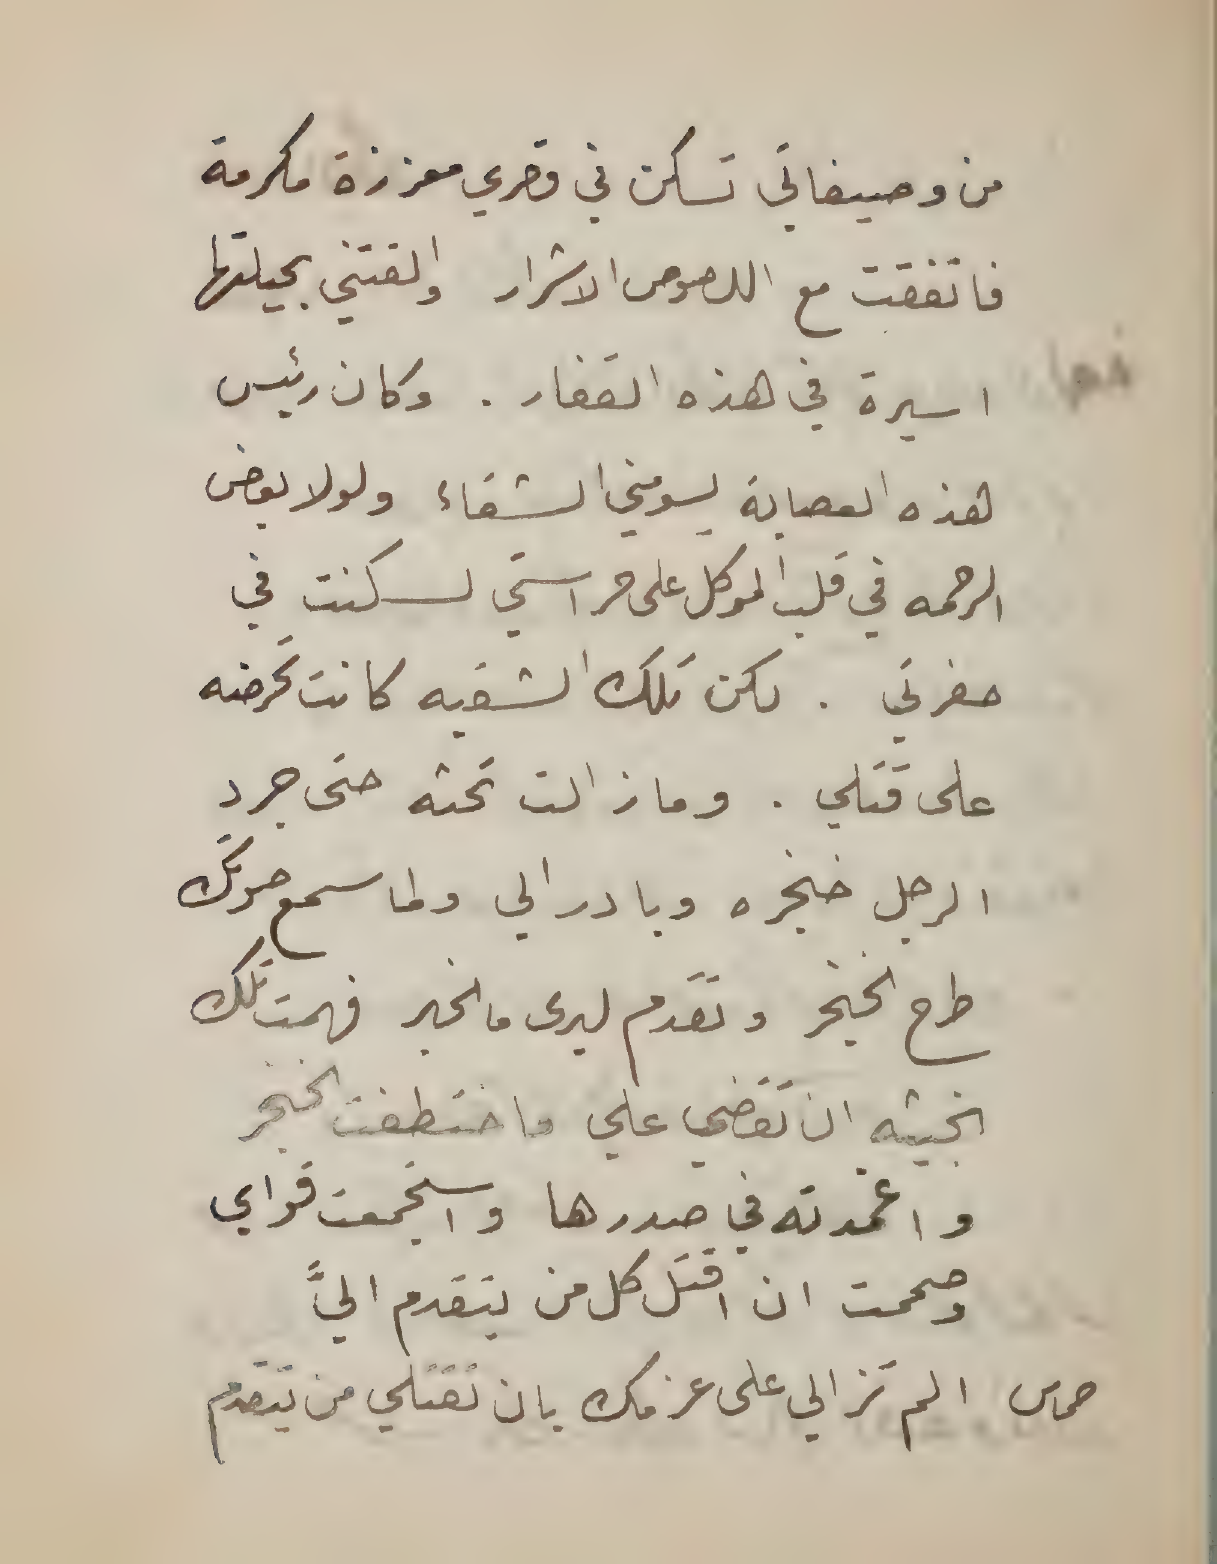 من وصيفاتي تسكن في قصري معززة مكرمة
فاتفقت مع اللصوص الاشرار والقتني بحيلتها
اسيرة في هذه القفار . وكان رئيس
هذه العصابة يسومني الشقاء ولولا بعض
الرحمه في قلب الموكل على حراستي لسكنت في
حفرتي . لكن تلك الشقيه كانت تحرضه
على قتلي . وما زالت تحثه حتى جرد
الرجل خنجره وبادر الي ولما سمع صوتك
طرح الخنجر وتقدم ليرى ما الخبر فهمت تلك
الخبيثه ان تقضي علي فاختطفت الخنجر
واغمدته في صدرها واستجمعت قواي
وصممت ان اقتل كل من يتقدم اليَّ
حماس الم تزالي على عزمك بان تقتلي من يتقدم